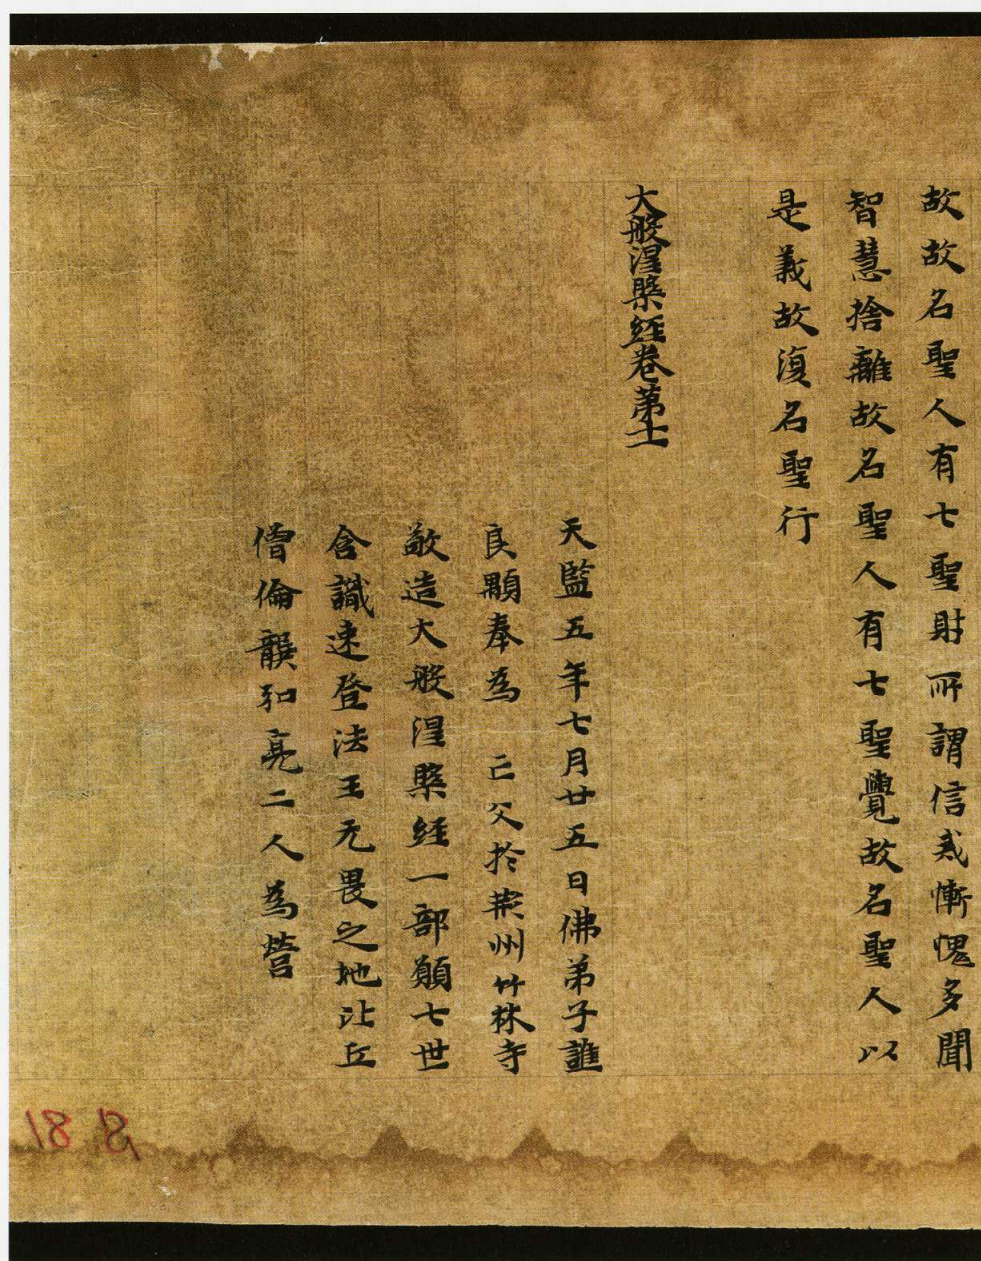 故故名聖人有七聖財所謂信戒慚愧多聞
智慧捨離故名聖人有七聖覺故名聖人以
是義故復名聖行
大般涅槃經卷第十一
天監五年七月廿五日佛弟子譙
良顒奉為 亡父於荊州竹林寺
敬造大般涅槃經一部願七世
含識速登法王无畏之地比丘
僧倫龔和亮二人為營
S. 81